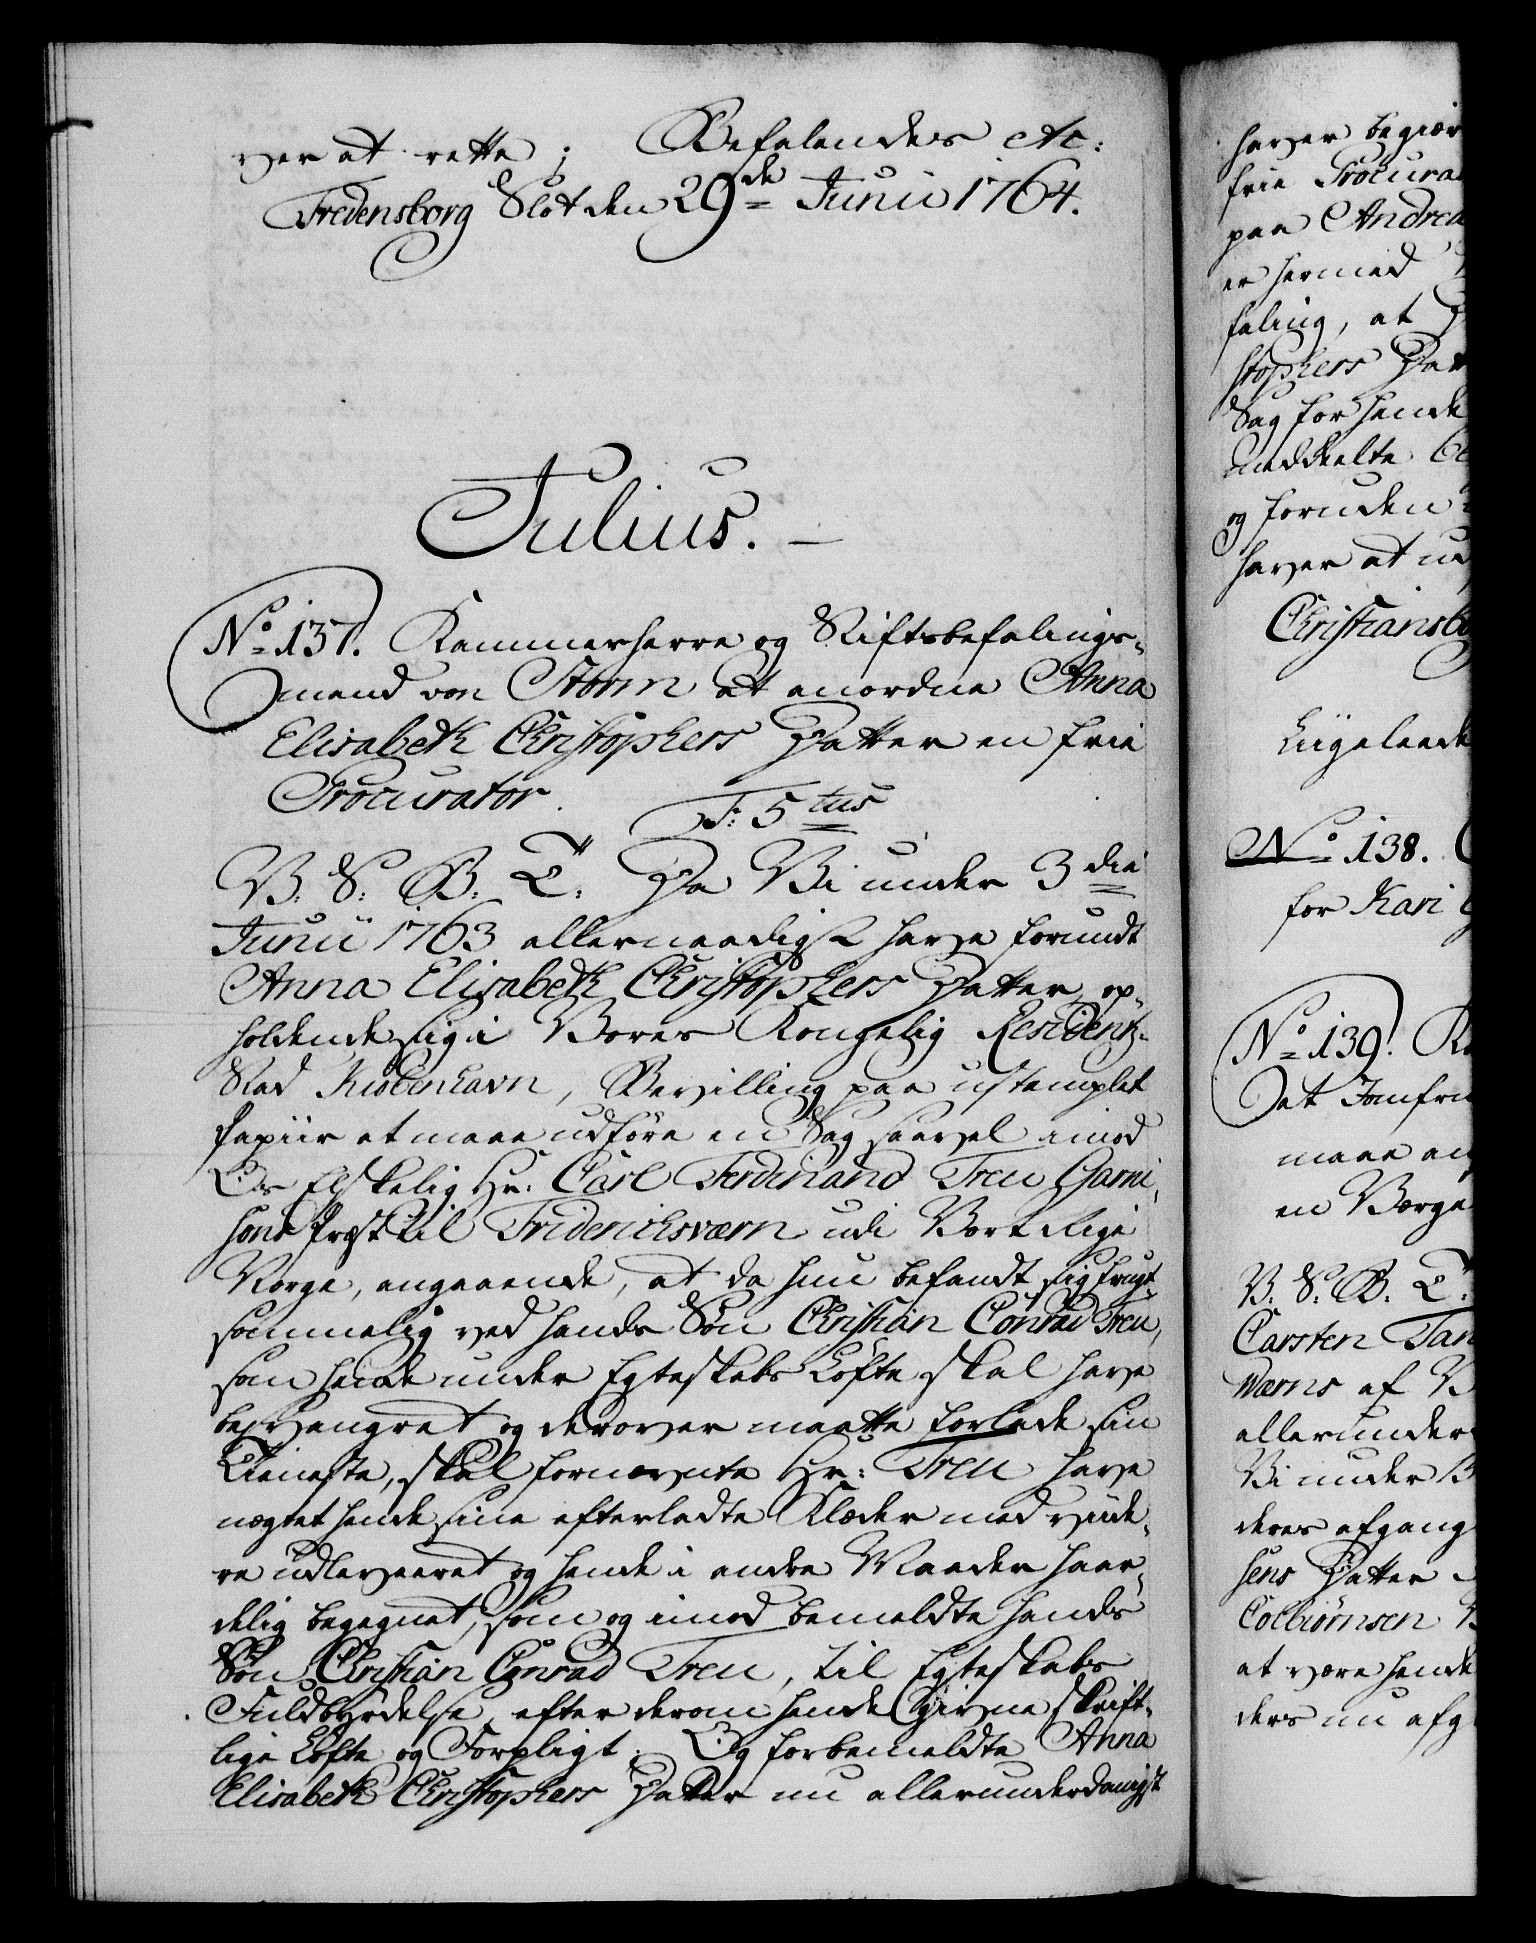 ver at rette; Befalendes etc:
Fredensborg Slot den 29de Junii 1764.
Julius.
No 137. Kammerherre og Stiftsbefalings-
mand von Storm at anordne Anna
Elisabeth Christophers Datter en frie
Procurator.
F: 5tus
V. S. B. T. Da Vi under 3die
Junii 1763 allernaadigst have forundt
Anna Elisabeth Christophers Datter, op-
holdende sig i Vores Kongelig Residentz-
Stad Kiøbenhavn, Bevilling paa ustemplet
Papiir at maae udføre en Sag saavel imod
Os Elskelig Hr. Carl Ferdinand Treu Garni-
sons Præst til Friderichsværn udi Vort Rige
Norge, angaaende, at da hun befandt sig frugt-
sommelig ved hands Søn Christian Conrad Treu,
som hende under Egteskabs Løfte skal have
besvangret og derover maatte forlade sin
Tieneste, skal fornævnte Hr: Treu have
nægtet hende sine efterladte Klæder med viide-
re udleveret og hende i andre Maader haar-
delig begegnet, som og imod bemeldte hands
Søn Christian Conrad Treu, til Egteskabs
Fuldbyrdelse, efter derom hende givne skrift-
lige Løfte og Forpligt. Og forbemeldte Anna
Elisabeth Christophers Datter nu allerunderdanigst
haver begiær
frie Procura
paa Andrea
er hermed
faling, at
stophers Dat
Sag for hende
meddeelte
og foruden
haver at ud
Christiansbo
Liigelaede
No 138.
for Kari
No 139.
at Jomfru
maae an
en Værge
V. S. B. T.
Carsten Tan
Værns af V
allerunder
Vi under
deres afgang
sens Datter
Colbiørnsen
at være hende
ders nu afg